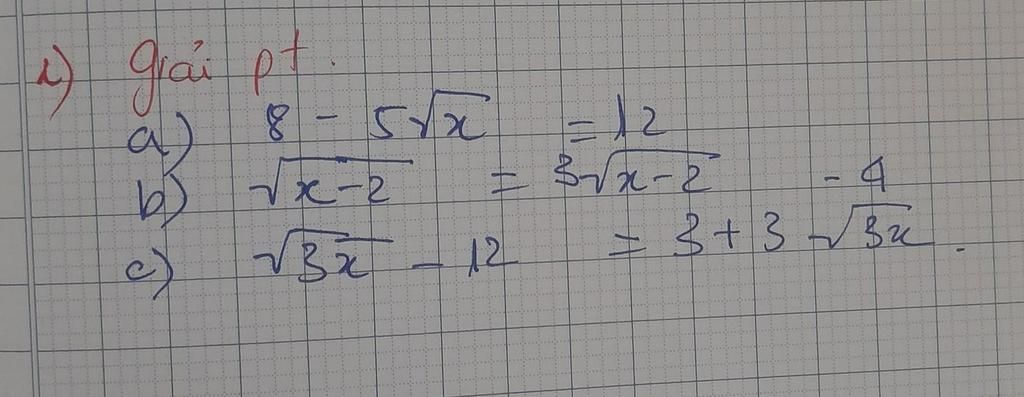 1) Giải pt.
a) 8 - 5√x = 12
b) √x-2 = 3√x-2 - 4
c) √3x - 12 = 3 + 3√3x.